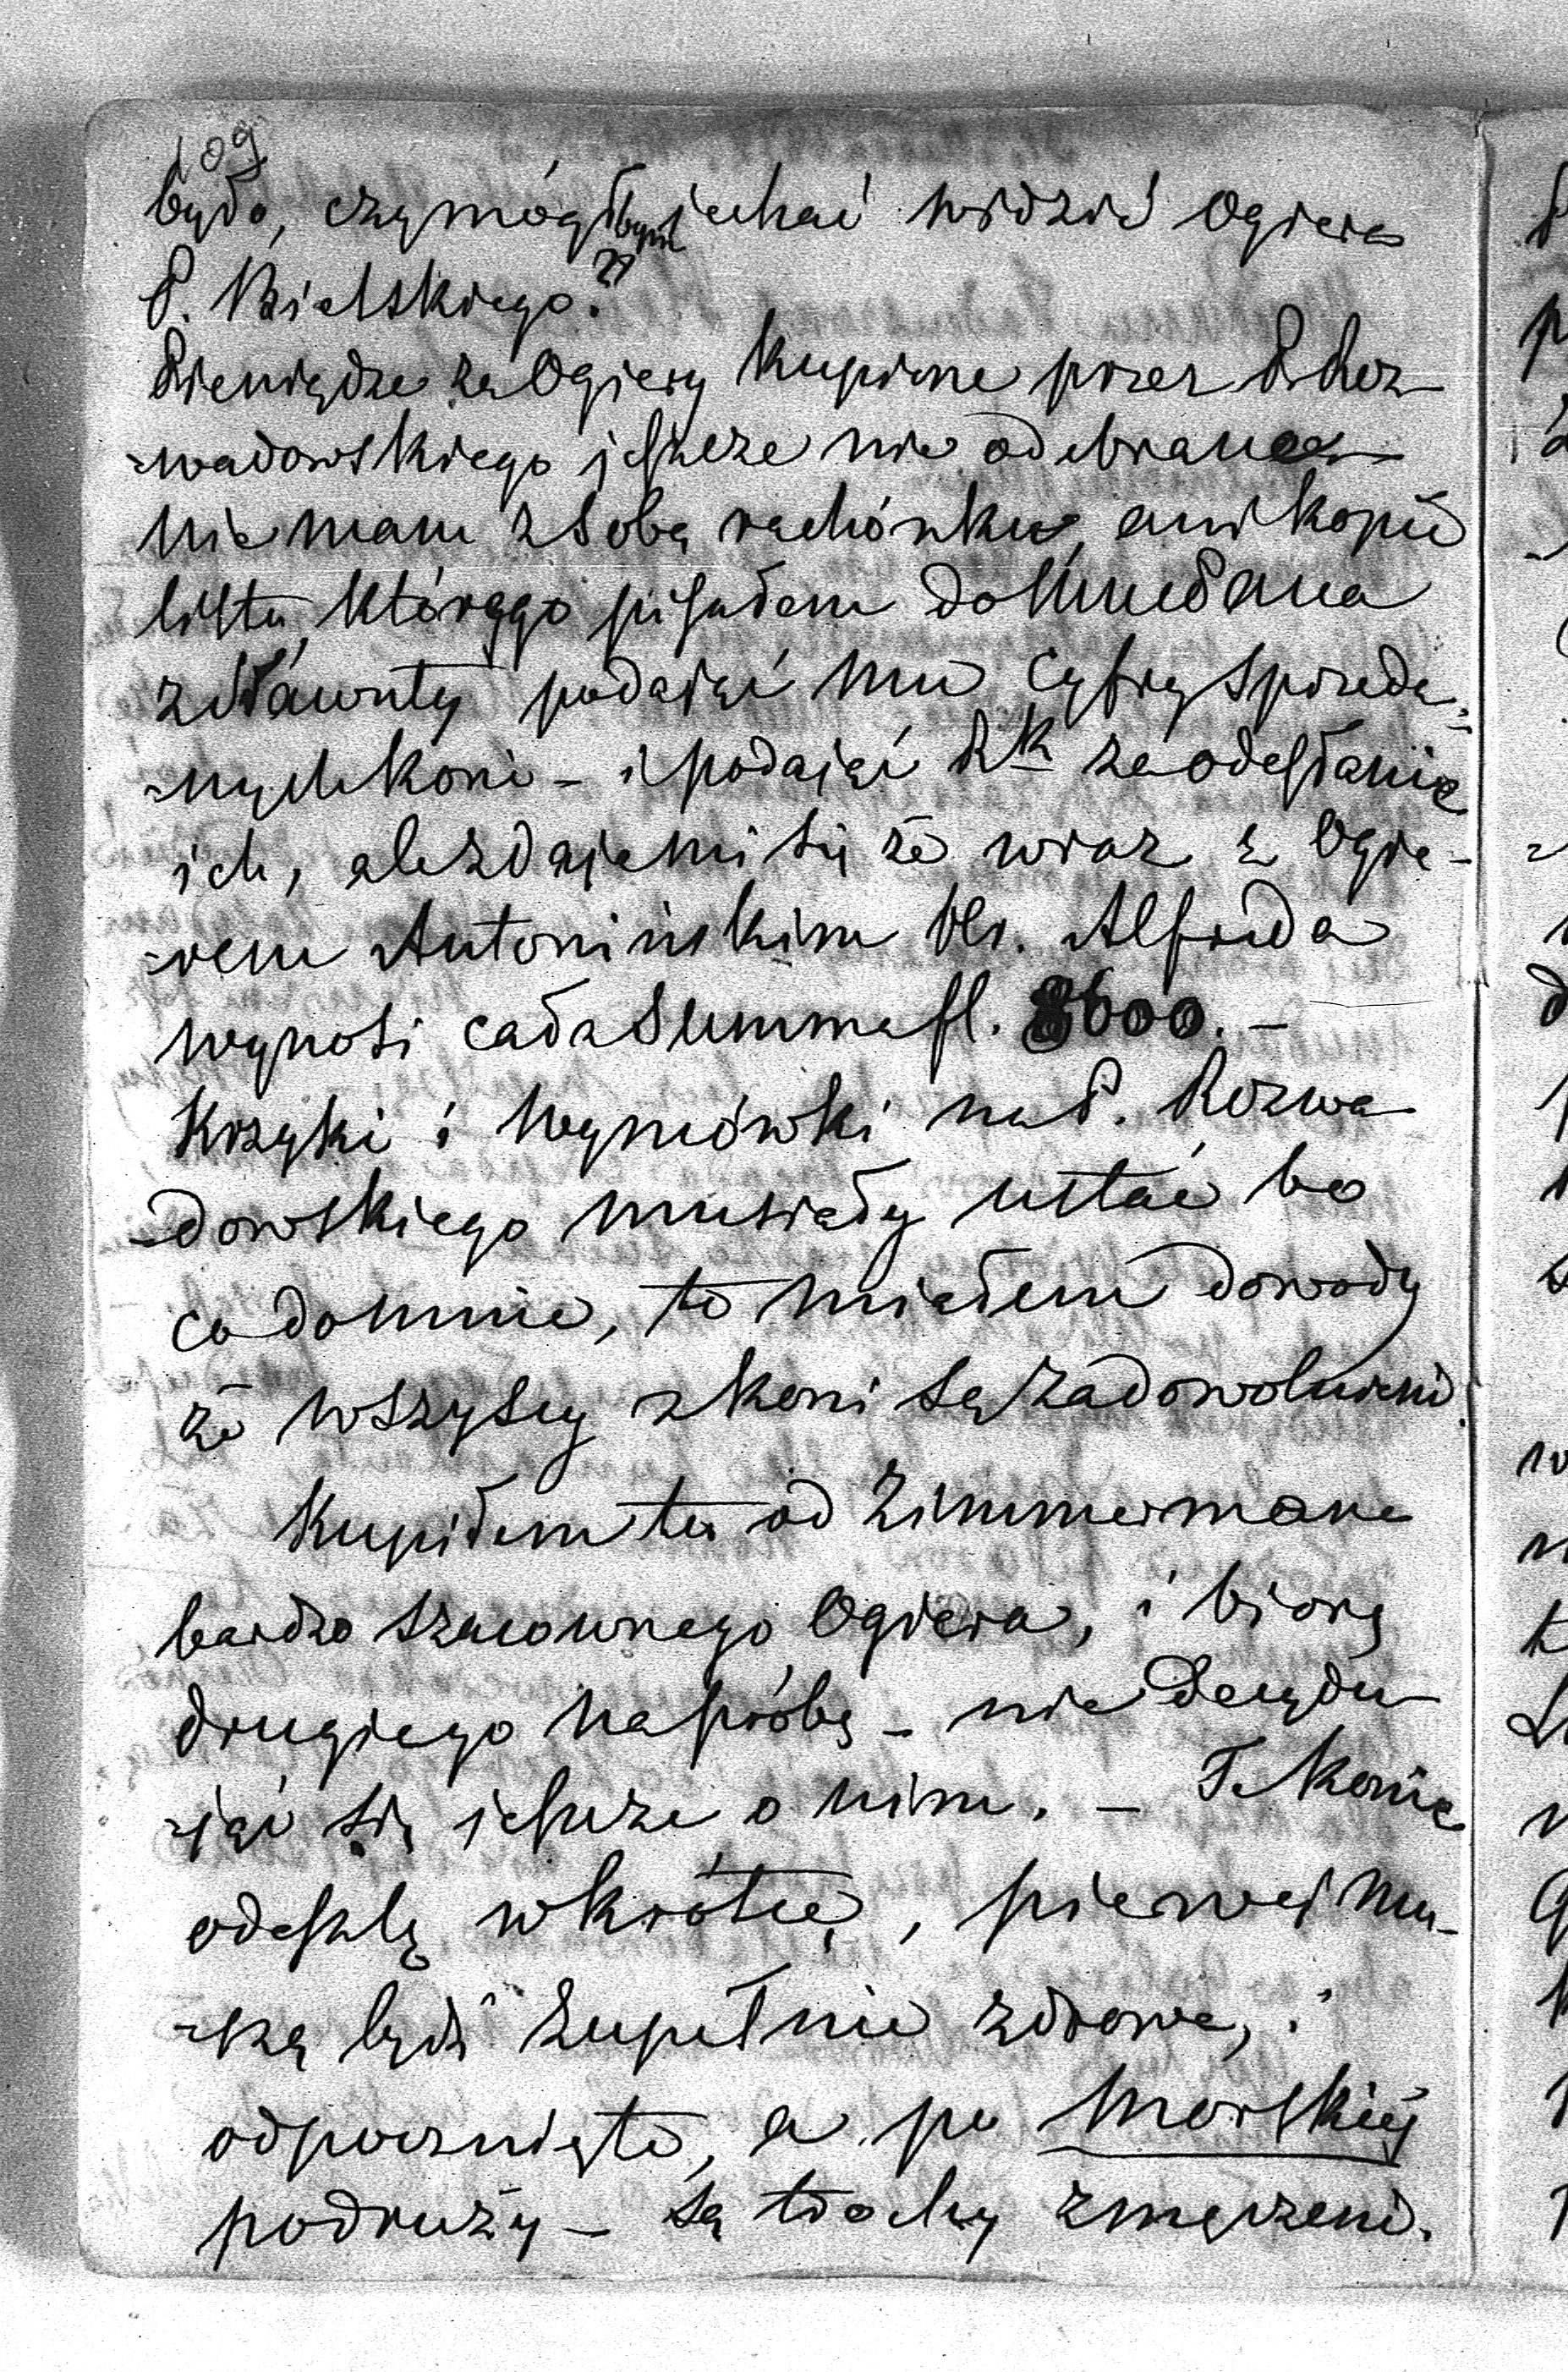 109
było, czy mógłbym jechać widzić Ogiera
P. Bielskiego?
Pieniądze za Ogiery kupione przez P. Roz
-wadowskiego jeszcze nie odebrane
nie mam z sobą rachónku, ani kopii
listu, którego pisałem do
z Sławuty podając mu Cyfry sprzeda-
-nych koni - i podając Rk za odesłanie
ich, ale zdaje mi się że wraz z Ogie-
-rem Antonińskim Hr. Alfreda
wynosi cała Summa fl. 8600. -
Krzyki i wymówki na P. Rozwa
-dowskiego musiały ustać bo
co do mnie, to miałem dowody
że wszyscy z koni są zadowolnieni.
Kupiłem tu od Zimmermana
bardzo szacownego Ogiera, i biorę
drugiego na próbę - nie decydu
-jąc się jeszcze o nim. - Te konie
odeszlę wkrótce, pierwej mu-
-szą być zupełnie zdrowe, i
odpocznięte, a po morskiéj
podruży - są trochę zmęczeni.